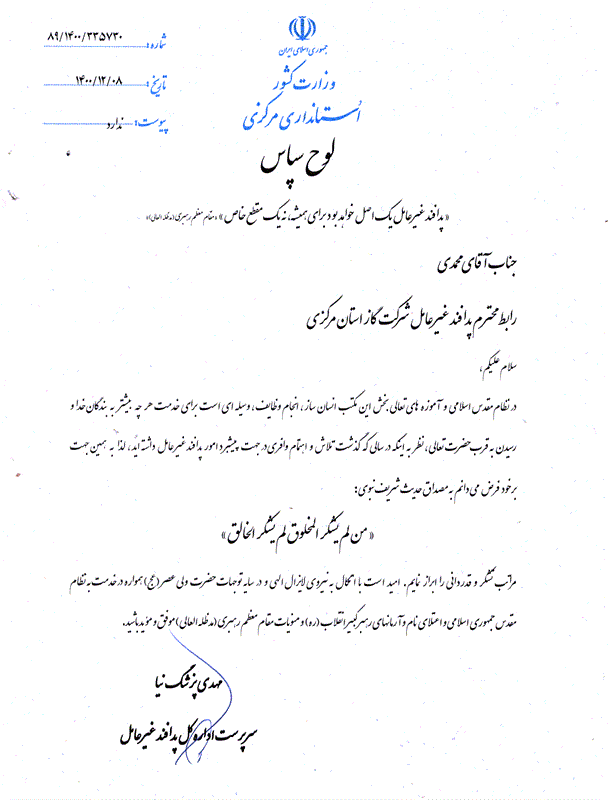 جمهوری اسلامی ایران
وزارت کشور
استانداری مرکزی
شماره: ۸۹/۱۴۰۰/۳۳۵۷۳۰
تاریخ: ۱۴۰۰/۱۲/۰۸
پیوست: ندارد
لوح سپاس
«پدافند غیرعامل یک اصل خواهد بود برای همیشه، نه یک مقطع خاص» «مقام معظم رهبری (مدظله العالی)»
جناب آقای محمدی
رابط محترم پدافند غیرعامل شرکت گاز استان مرکزی
سلام علیکم،
در نظام مقدس اسلامی و آموزه های تعالی بخش این مکتب انسان ساز، انجام وظایف، وسیله ای است برای خدمت هر چه بیشتر به بندگان خدا و
رسیدن به قرب حضرت تعالی، نظر به اینکه در سالی که گذشت تلاش و اهتمام وافری در جهت پیشبرد امور پدافند غیرعامل داشته اید، لذا به همین جهت
بر خود فرض می دانم به مصداق حدیث شریف نبوی:
«من لم یشکر المخلوق لم یشکر الخالق»
مراتب تشکر و قدردانی را ابراز نمایم. امید است با اتکال به نیروی لایزال الهی و در سایه توجهات حضرت ولی عصر (عج) همواره در خدمت به نظام
مقدس جمهوری اسلامی و اعتلای نام و آرمانهای رهبر کبیر انقلاب (ره) و منویات مقام معظم رهبری (مدظله العالی) موفق و مؤید باشید.
مهدی پزشک نیا
سرپرست اداره کل پدافند غیرعامل